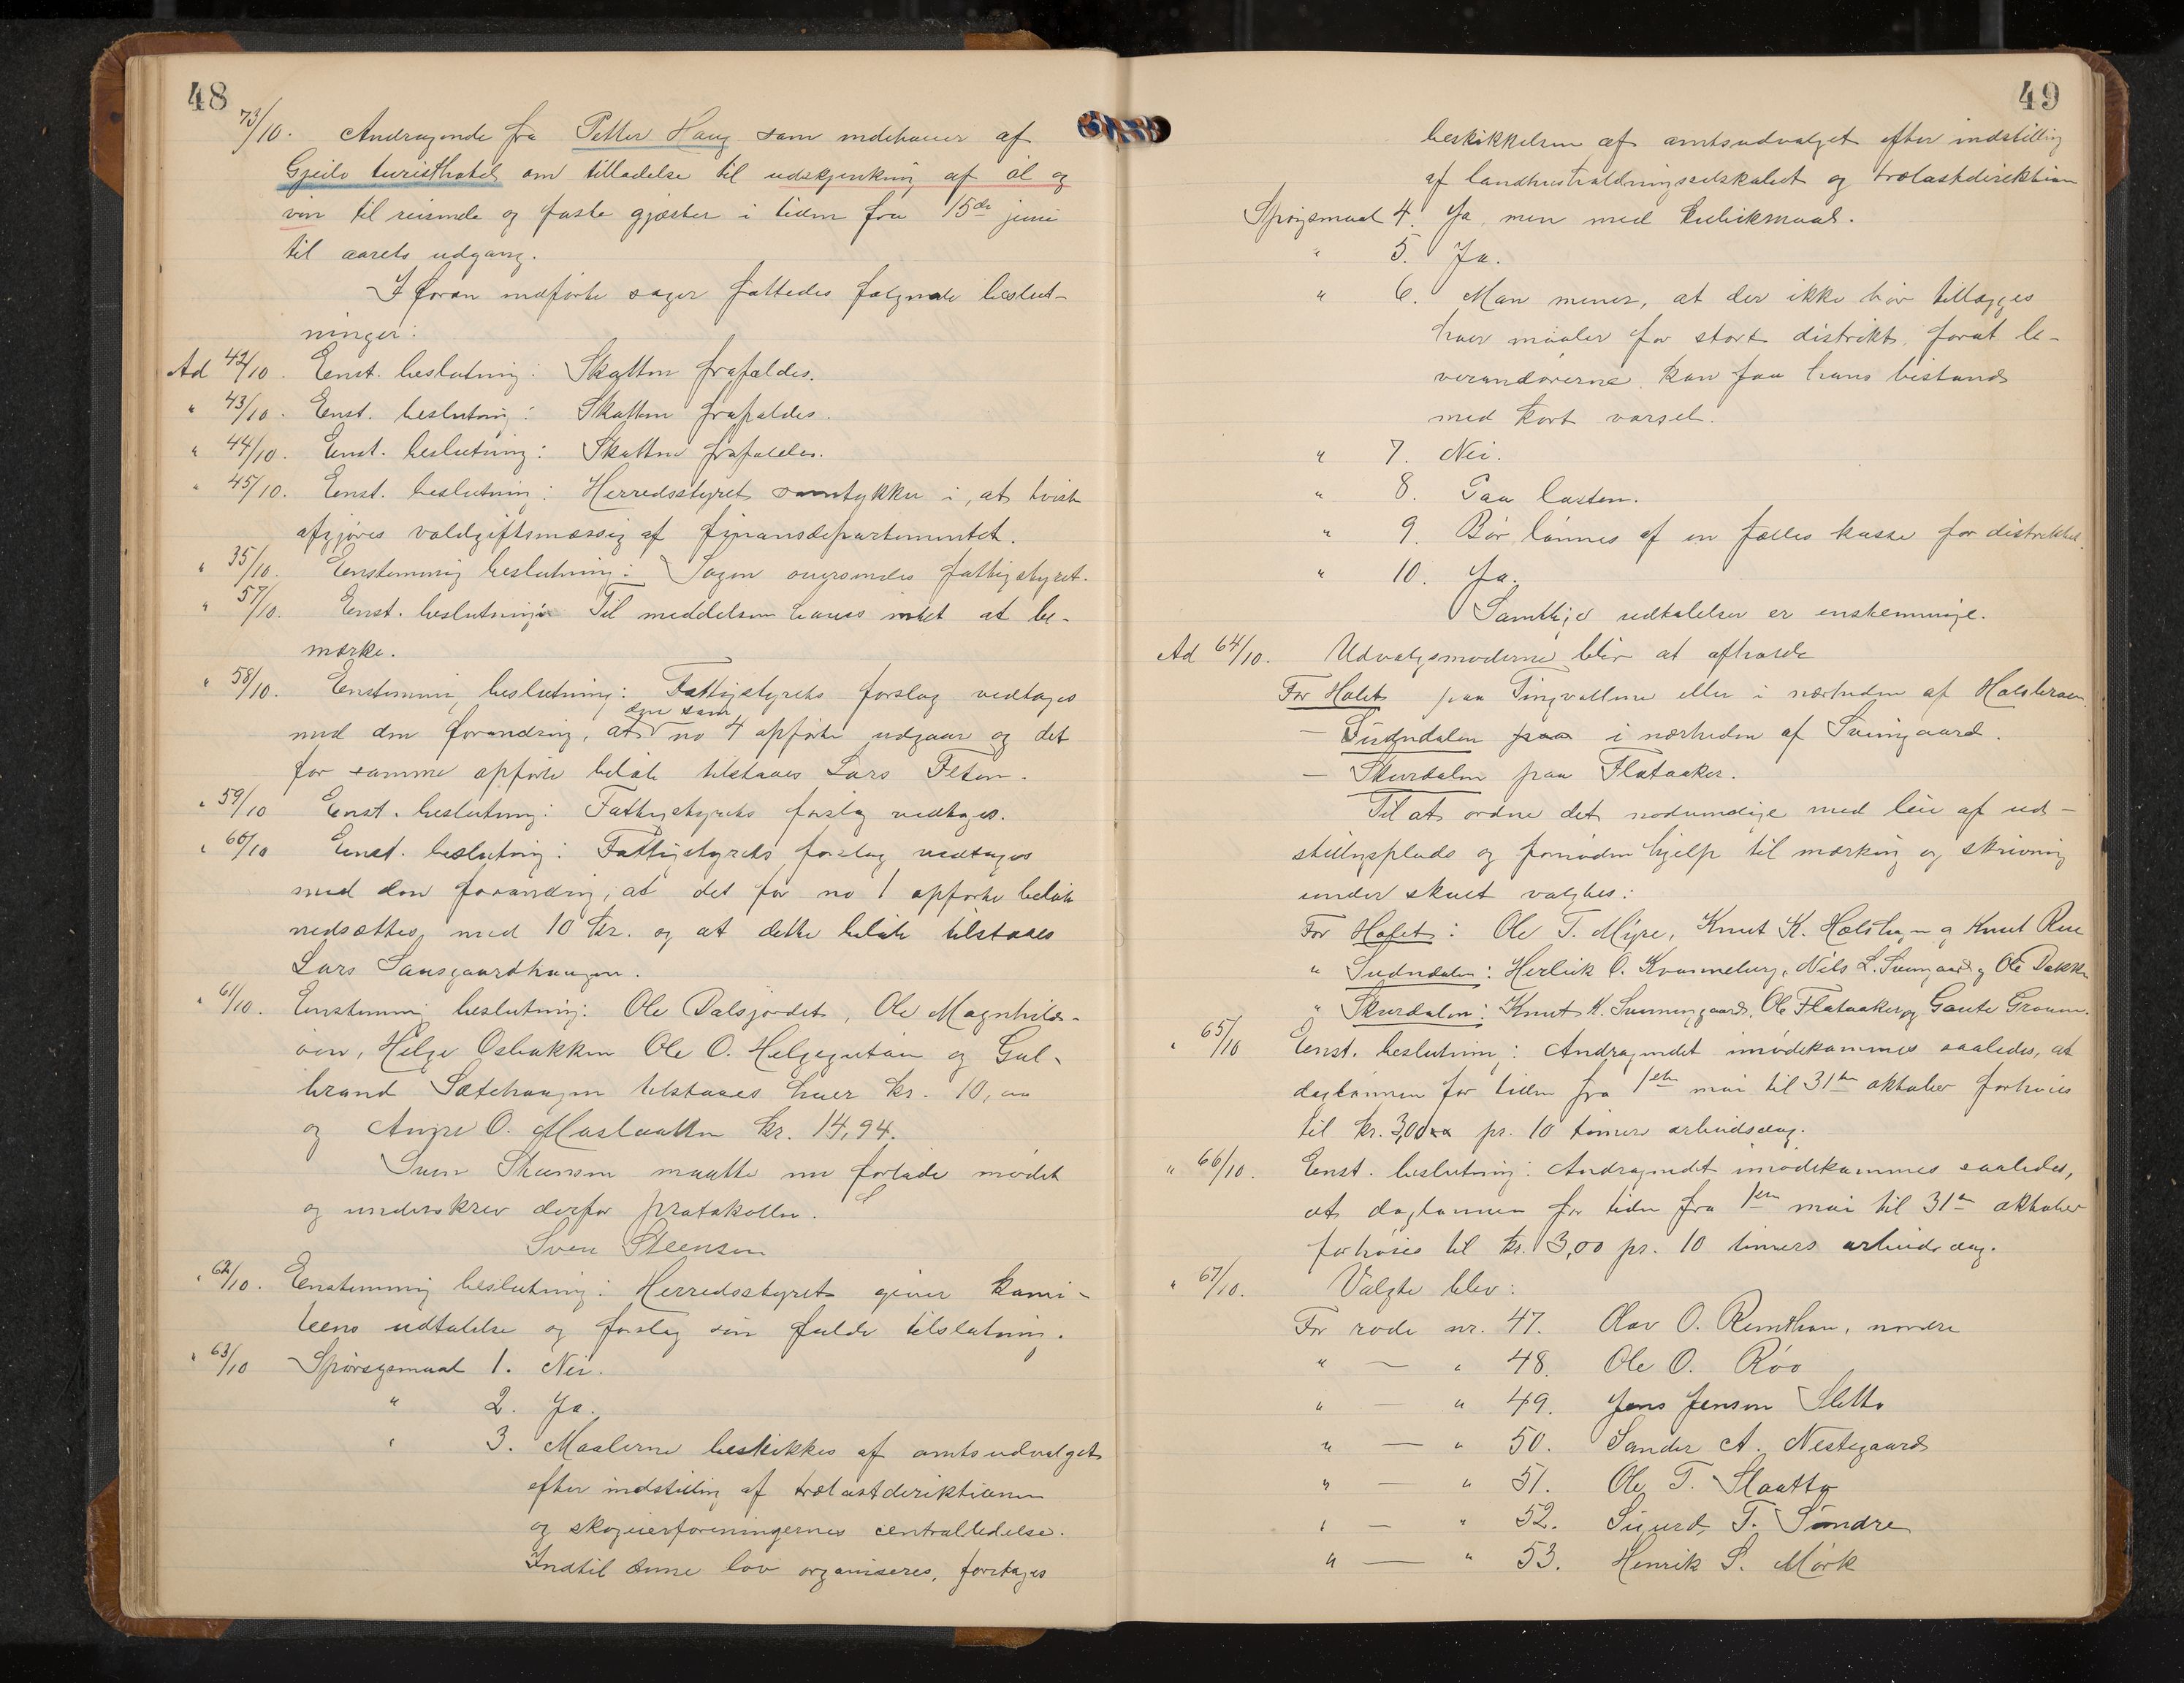 48
73/10. Andragende fra Petter Haug som indehaver af
Gjeilo turisthotel om tilladelse til udskjenkning af øl og
vin til reisende og faste gjæster i tiden fra 15de juni
til aarets udgang.
I foran indførte sager fattedes følgende beslut-
ninger:
Ad 42/10. Enst. beslutning: Skatten frafaldes.
" 43/10. Enst. beslutning: Skatten frafaldes.
" 44/10. Enst. beslutning: Skatten frafaldes.
" 45/10. Enst. beslutning: Herredsstyret samtykker i, at tvist
afgjøres voldgiftsmæssig af finansdepartementet.
" 35/10. Enstemmig beslutning: Sagen oversendes fattigstyret.
" 57/10. Enst. beslutning: Til meddelsen haves intet at be-
mærke.
" 58/10. Enstemmig beslutning: Fattigstyrets forslag vedtages
med den forandring, at den som no 4 opførte udgaar og det
for samme opførte beløb tilstaaes Lars Feten.
" 59/10 Enst. beslutning: Fattigstyrets forslag vedtages.
" 60/10 Enst. beslutning: Fattigstyrets forslag vedtages
med den forandring, at det for no 1 opførte beløb
nedsættes med 10 kr. og at dette beløb tilstaaes
Lars Sansgaardhaugen.
" 61/10. Enstemmig beslutning: Ole Dalsjordet, Ole Magnhilds-
øen, Helge Osbakken Ole O. Helgegutøin og Gul-
brand Sætehaugen tilstaaes hver kr. 10,00
og O. Maslaatten kr. 14,94.
Sven Steenson maatte nu forlade mødet
og underskrev derfor protokollen.
Sven Steenson
" 62/10. Enstemmig beslutning: Herredsstyret giver komi-
teens udtalelse og forslag sin fulde tilslutning.
" 63/10 Spørsgsmaal 1. Nei.
" 2. Ja.
" 3. Maalerne beskikkes af amtsudvalget
efter indstilling af trælastdirektionen
og skogeierforeningernes centralledelse.
Indtil denne lov organiseres, foretages
49
beskikkelsen af amtsudvalget efter indstilling
af landhusholdningsselskabet og trælastdirektion
Spørgsmaal 4. Ja men med kubikmaal.
" 5. Ja.
" 6. Man mener, at der ikke bør tillægges
hver maaler for stort distrikt, forat le-
verandørerne kan faa hans bistand
med kort varsel.
" 7. Nei.
" 8. Paa lasten.
" 9. Bør lønnes af en fælles kasse for distriktet.
" 10. Ja.
Samtlige udtalelser er enstemmige.
Ad 64/10. Udvalgsmøderne blir at afholde
For Holet paa Tingvollene eller i nærheden af Holsbroen
— Sudndalen paa i nærheden af Sveingaard.
— Skurdalen paa Flataaker.
Til at ordne det nødvendige med leie af ud-
stillingsplads og fornøden hjelp til mærking og skrivning
under skuet valgtes:
For Holet: Ole T. Myre, Knut K. Holsthagen og Knut Rue
" Sudndalen: Herlick O. Kvanneberg, Nils L. Sveingaard og Ole Dokken
" Skurdalen: Knut K. Sunningaard, Ole Flataaker og Gaute
" 65/10 Enst. beslutning: Andragendet imødekommes saaledes, at
daglønnen for tiden fra 1ste mai til 31te oktober forhøies
til kr. 3,00 pr. 10 timers arbeidsdag.
" 66/10. Enst. beslutning: Andragendet imødekommes saaledes,
at daglønnen for tiden fra 1ste mai til 31te oktober
forhøies til kr. 3,00 pr. 10 timers arbeidsdag.
" 67/10. Valgte blev:
For rode nr. 47. Olav O. Reinthon, nordre
" — " 48. Ole O. Røo
" — " 49. Jens Jenson Sletto
" — " 50. Sander A. Nestegaard
" — " 51. Ole T. Slaatto
" — " 52. Sigurd T. Søndre
" — " 53. Henrik S. Mørk